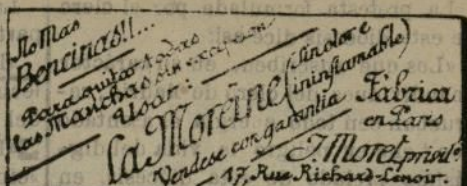 No Mas
Bencinas!!...
Para quitar todas
las Manchas sin excepcion
Usar:
La Moréine (Sin olor e
ininflamable)
Vendese con garantia
Fábrica
en Paris
J. Moret, privilº.
17, Rue Richard-Lenoir.